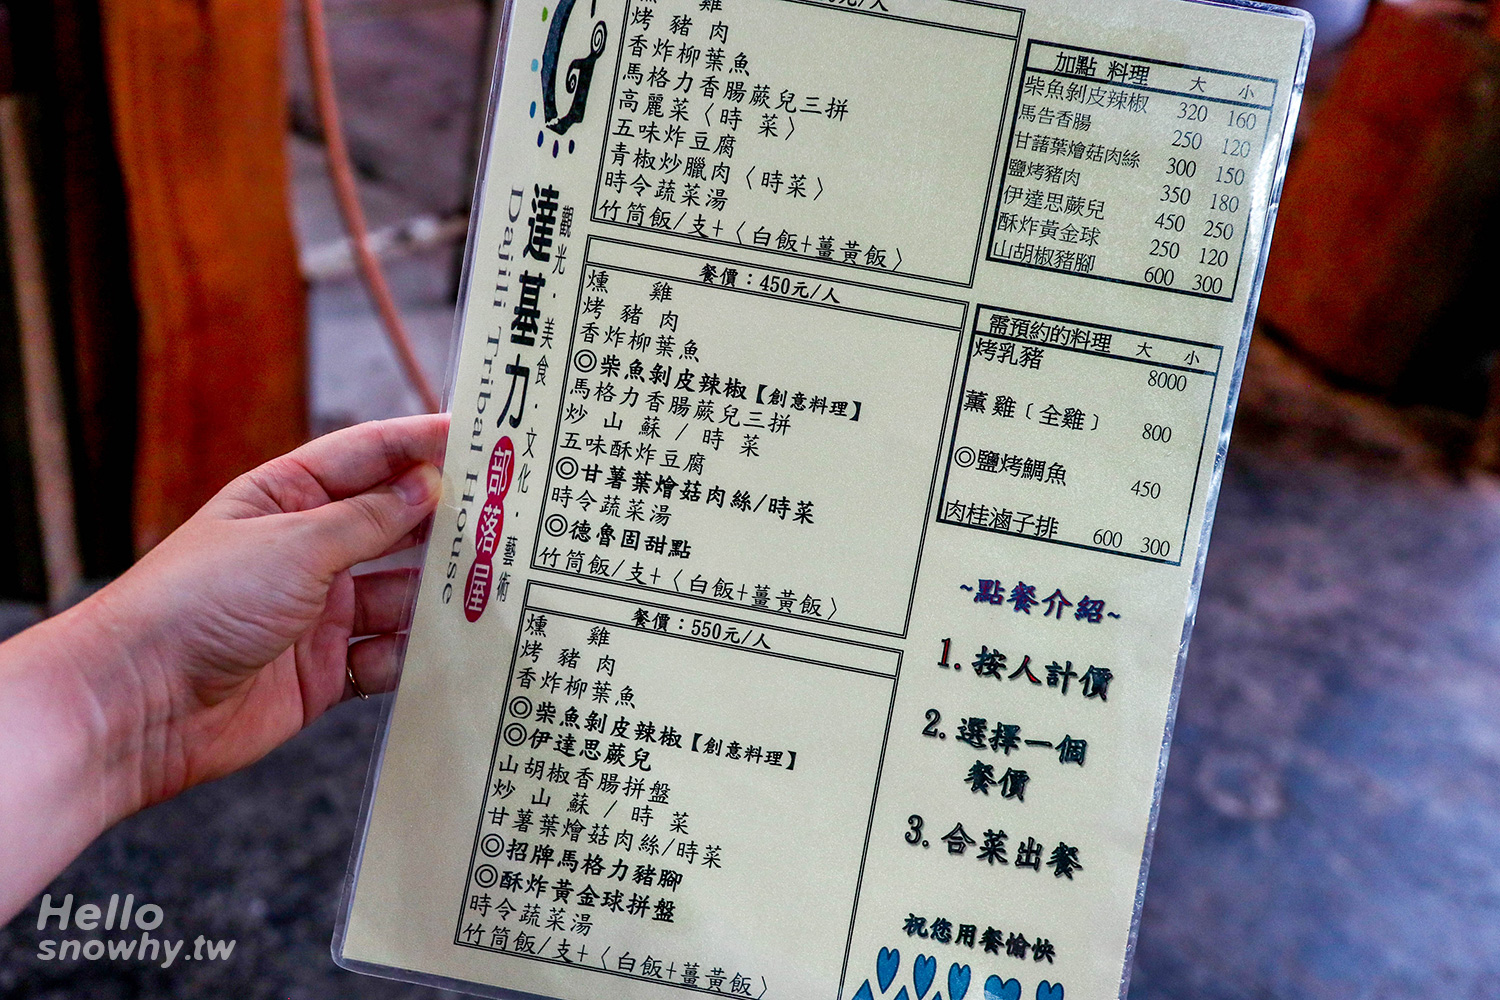 達基力
部落屋
觀光·美食·文化·藝術
Dajili Tribal House
元/人
雞
烤豬肉
香炸柳葉魚
馬格力香腸蕨兒三拼
高麗菜〈時菜〉
五味炸豆腐
青椒炒臘肉〈時菜〉
時令蔬菜湯
竹筒飯/支+〈白飯+薑黃飯〉
餐價：450元/人
燻雞
烤豬肉
香炸柳葉魚
◎柴魚剝皮辣椒【創意料理】
馬格力香腸蕨兒三拼
炒山蘇/時菜
五味酥炸豆腐
◎甘薯葉燴菇肉絲/時菜
時令蔬菜湯
◎德魯固甜點
竹筒飯/支+〈白飯+薑黃飯〉
餐價：550元/人
燻雞
烤豬肉
香炸柳葉魚
◎柴魚剝皮辣椒【創意料理】
◎伊達思蕨兒
山胡椒香腸拼盤
炒山蘇/時菜
甘薯葉燴菇肉絲/時菜
◎招牌馬格力豬腳
◎酥炸黃金球拼盤
時令蔬菜湯
竹筒飯/支+〈白飯+薑黃飯〉
加點 料理 大 小
柴魚剝皮辣椒 320 160
馬告香腸 250 120
甘藷葉燴菇肉絲 300 150
鹽烤豬肉 350 180
伊達思蕨兒 450 250
酥炸黃金球 250 120
山胡椒豬腳 600 300
需預約的料理 大 小
烤乳豬 8000
薰雞﹝全雞﹞ 800
◎鹽烤鯛魚 450
肉桂滷子排 600 300
~點餐介紹~
1.按人計價
2.選擇一個
餐價
3.合菜出餐
祝您用餐愉快
Hello
snowhy.tw